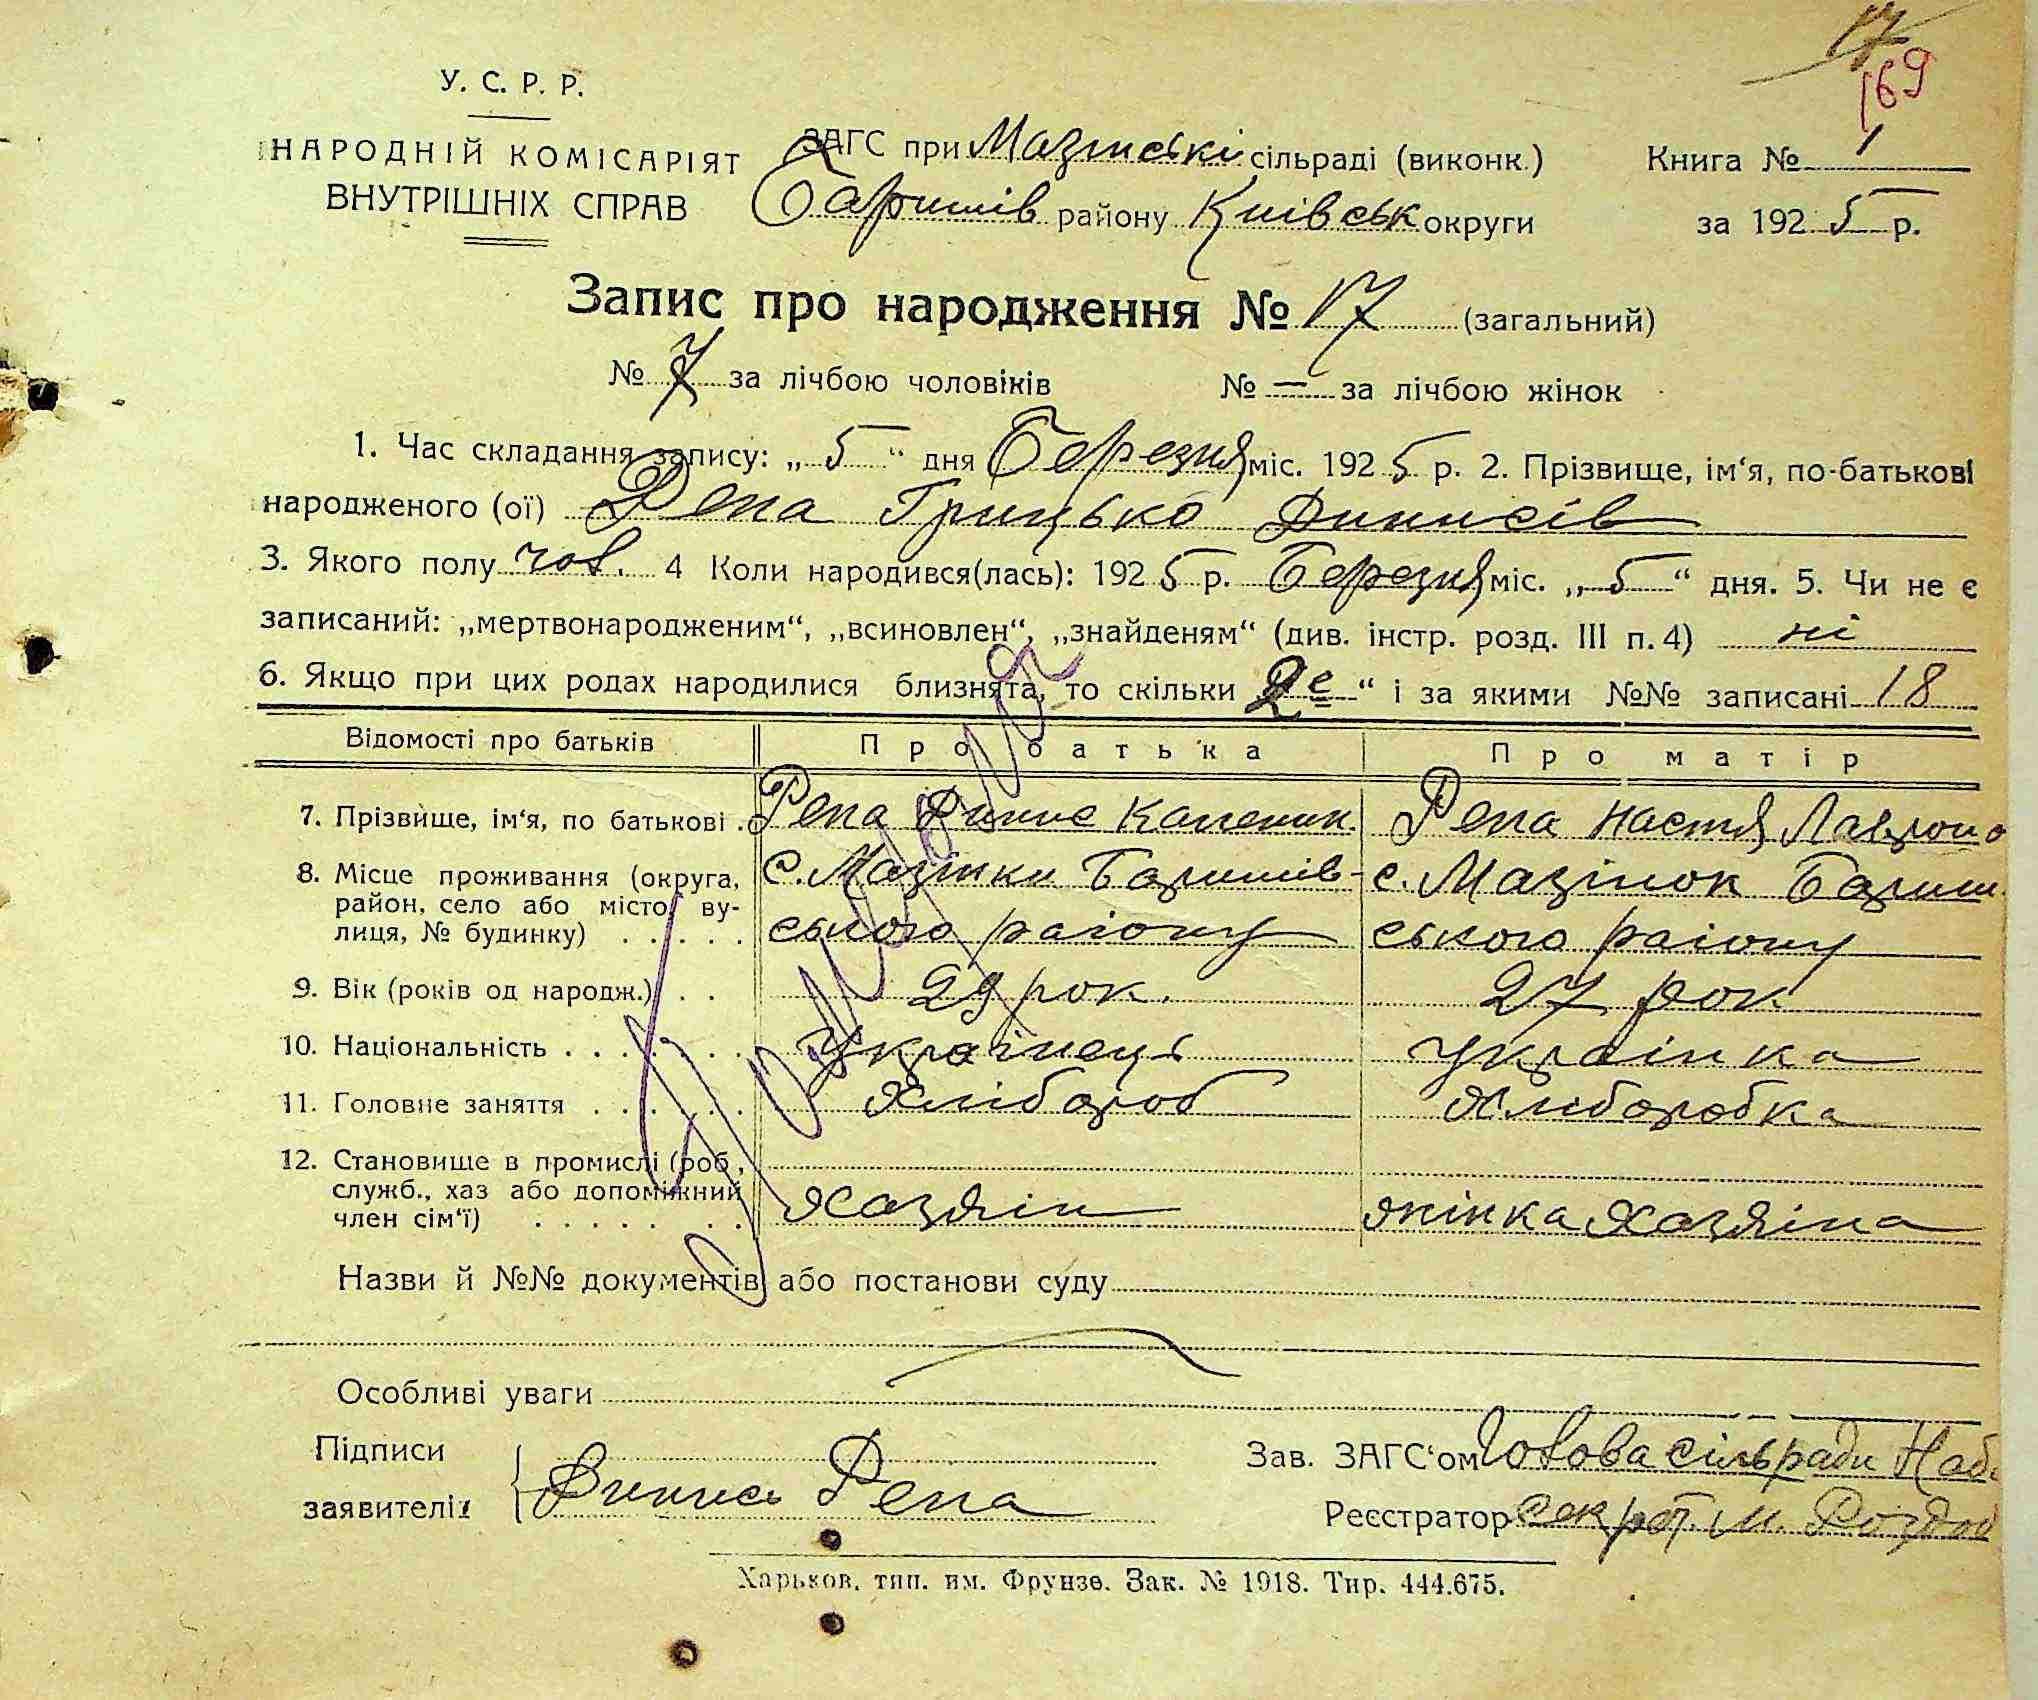 17
169
У. С. Р. Р.
НАРОДНІЙ КОМІСАРІЯТ
ВНУТРІШНІХ СПРАВ
ЗАГС при Мазінські сільраді (виконк.)
Баришів району Київськ округи
Книга № 1
за 1925 р.
Запис про народження № 17 (загальний)
№ 7 за лічбою чоловіків № — за лічбою жінок
1. Час складання запису: „5“ дня Березня міс. 1925 р. 2. Прізвище, ім‘я, по-батькові
народженого (ої) Репа Грицько Динисів
3. Якого полу чол. 4 Коли народився(лась): 1925 р. Березня міс. „5“ дня. 5. Чи не є
записаний: „мертвонародженим“, „всиновлен“, „знайденям“ (див. інстр. розд. III п. 4) ні
6. Якщо при цих родах народилися близнята, то скільки 2е“ і за якими №№ записані 18
Відомості про батьків Про батька Про матір
7. Прізвище, ім‘я, по батькові . Репа Динис Каленик. Репа Настя
8. Місце проживання (округа, с. Мазінки Баришів- с. Мазінок Бариш
район, село або місто, ву-
лиця, № будинку) . . . . . ського раіону ського раіону
9. Вік (років од народж.) . . 29 рок. 27 рок
10. Національність . . . . . . . Українець Українка
11. Головне заняття . . . . . . Хлібороб Хліборобка
12. Становище в промислі (роб.,
служб., хаз або допоміжний
член сім‘ї) . . . . . . . . Хазяін жінка Хазяіна
Назви й №№ документів або постанови суду
Особливі уваги
Підписи
заявителів Динис Репа
Зав. ЗАГС‘ом Голова сільради
Реєстратор секрет. М.
Харьков, тип. им. Фрунзе. Зак. № 1918. Тир. 444.675.